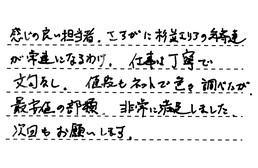 感じの良い担当者。さすがに杉並エリアの
が常連になるわけ。仕事は丁寧で
文句なし。値段もネットで色々調べたが、
最安値の部類 非常に満足しました。
次回もお願いします。